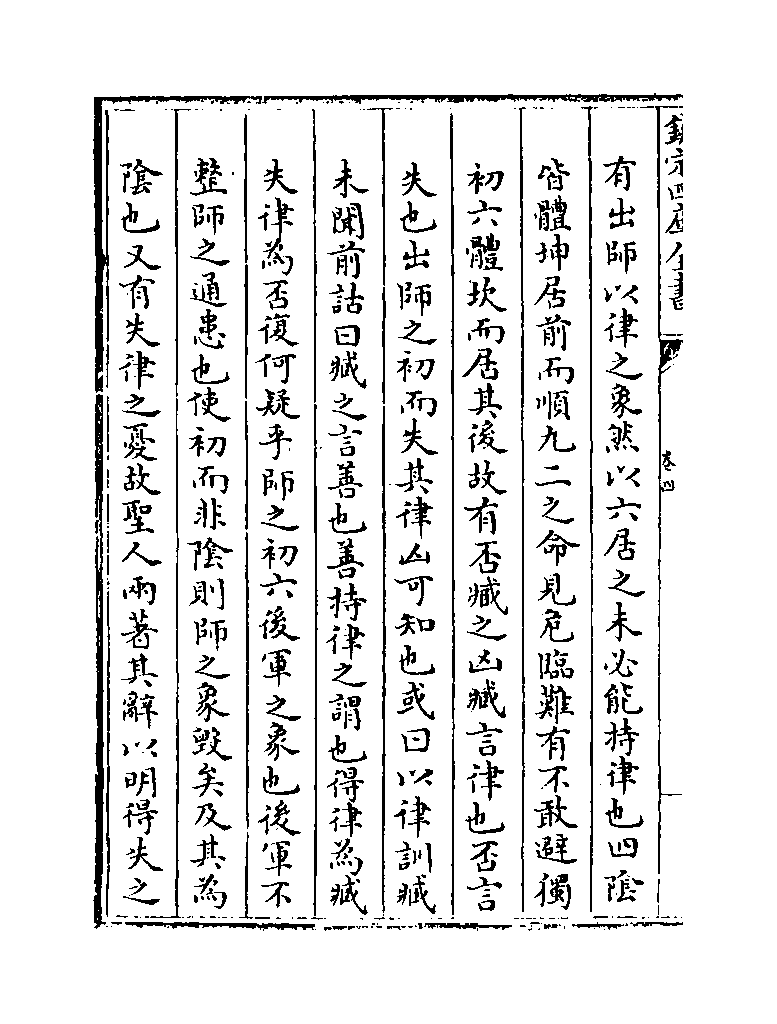 欽定四庫全書
卷四
有出師以律之象然以六居之未必能持律也四陰
皆體坤居前而順九二之命見危臨難有不敢避獨
初六體坎而居其後故有否臧之凶臧言律也否言
失也出師之初而失其律凶可知也或曰以律訓臧
未聞前詁曰臧之言善也善持律之謂也得律為臧
失律為否復何疑乎師之初六後軍之象也後軍不
整師之通患也使初而非陰則師之象毀矣及其為
陰也又有失律之憂故聖人兩著其辭以明得失之